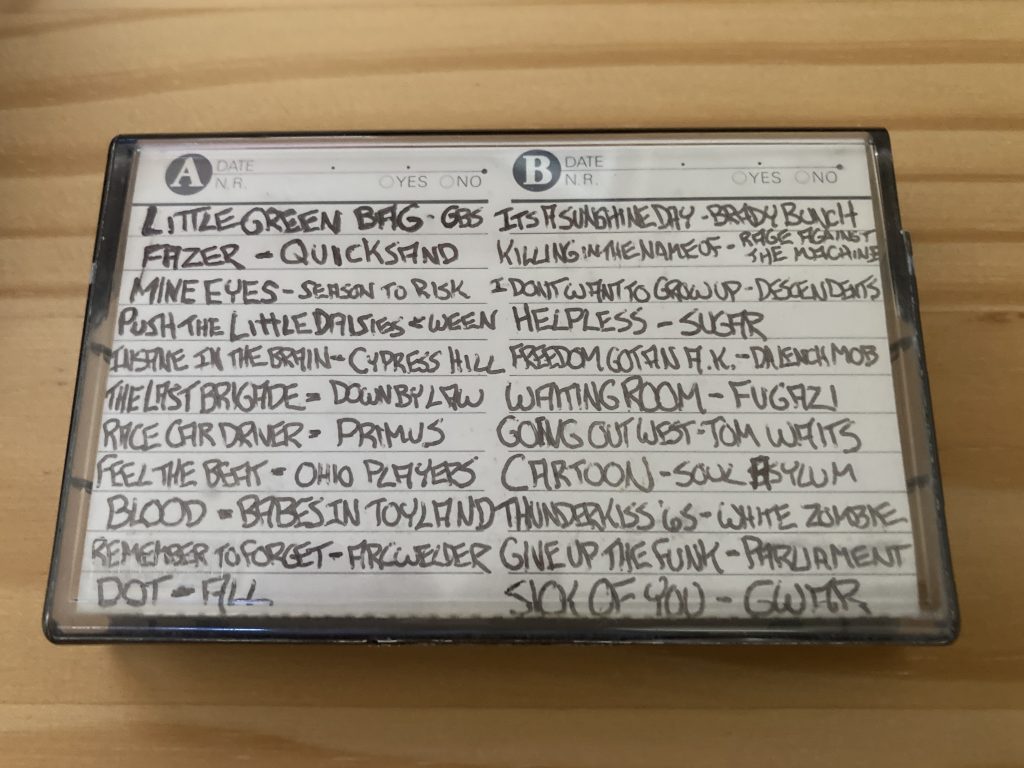 A DATE
N.R. YES NO
LITTLE GREEN BAG - GBS
FAZER - QUICKSAND
MINE EYES - SEASON TO RISK
PUSH THE LITTLE DAISIES - WEEN
INSANE IN THE BRAIN - CYPRESS HILL
THE LAST BRIGADE - DOWN BY LAW
RACE CAR DRIVER - PRIMUS
FEEL THE BEAT - OHIO PLAYERS
BLOOD - BABES IN TOYLAND
REMEMBER TO FORGET - ARCWELDER
DOT - ALL
B DATE
N.R. YES NO
ITS A SUNSHINE DAY - BRADY BUNCH
KILLING IN THE NAME OF - RAGE AGAINST
THE MACHINE
I DONT WANT TO GROW UP - DESCENDENTS
HELPLESS - SUGAR
FREEDOM GOT AN A.K. - DA LENCH MOB
WAITING ROOM - FUGAZI
GOING OUT WEST - TOM WAITS
CARTOON - SOUL ASYLUM
THUNDERKISS '65 - WHITE ZOMBIE
GIVE UP THE FUNK - PARLIAMENT
SICK OF YOU - GWAR